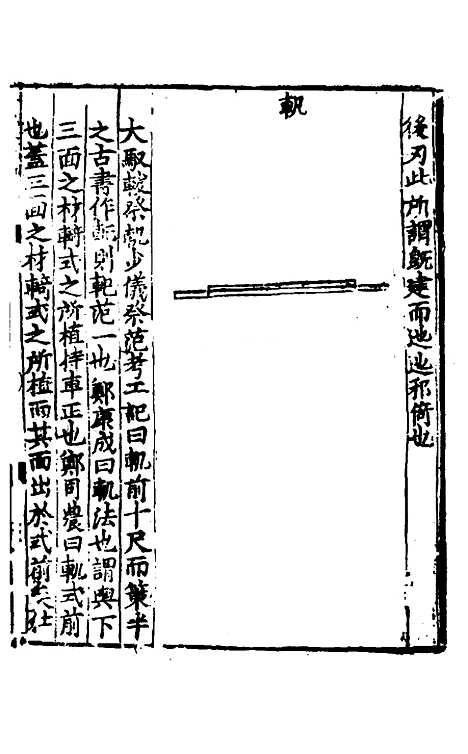 後刃此所謂既建而迤迤邪倚也
軓
大馭軷祭軓少儀祭范考工記曰軓前十尺而策半
之古書作軛則軓范一也鄭康成曰軓法也謂輿下
三面之材輢式之所植持車正也鄭司農曰軓式前
也蓋三面之材輢式之所植而其面出於式前